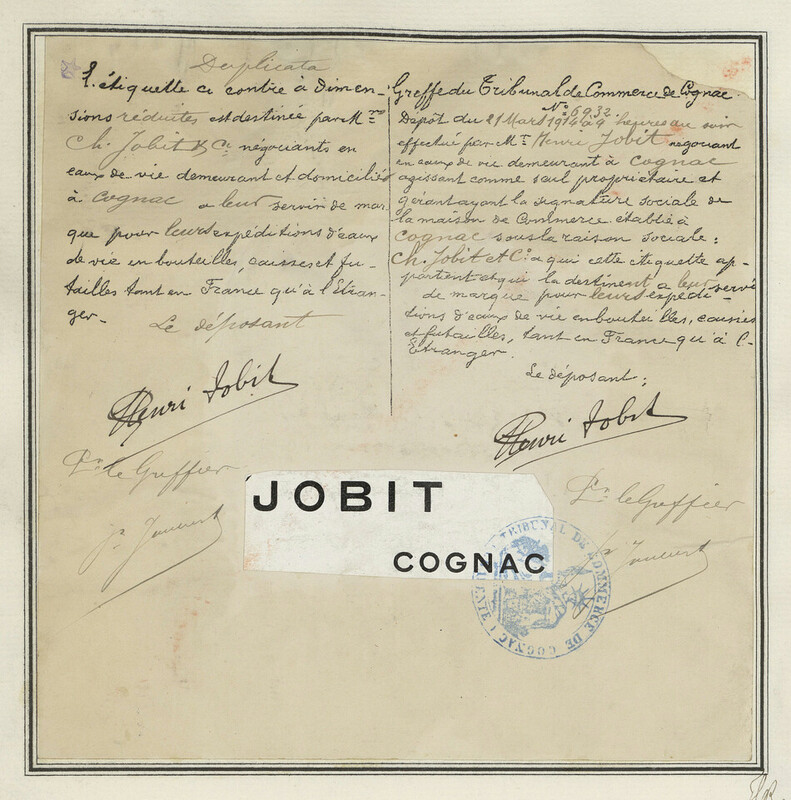 Duplicata
L'étiquette ci contre à Dimen-
sions réduites est destinée par M.rs
Ch. Jobit & Cie négociants en
eaux de vie demeurant et domiciliés
à Cognac a leur servir de mar
que pour leurs expéditions d'eaux
de vie en bouteilles, caisses et fu-
tailles tant en France qu'à l'Etran-
ger.
Le déposant
Henri Jobit
Pr. le Greffier
Greffe du Tribunal de Commerce de Cognac.
No 6932
Dépôt du 21 Mars 1914 à 9 heures au soir
effectué par M.r Henri Jobit négociant
en eaux de vie demeurant à Cognac
agissant comme seul propriétaire et
gérant ayant la signature sociale de
la maison de Commerce établie à
Cognac sous la raison sociale:
Ch. Jobit et Cie a qui cette étiquette ap-
partient et qui la destinent a leur servir
de marque pour leurs expédi-
tions d'eaux de vie en bouteilles, caisses
et futailles, tant en France qu'à l'-
Etranger.
Le déposant:
Henri Jobit
Pr. le Greffier
JOBIT
COGNAC
TRIBUNAL DE COMMERCE DE COGNAC